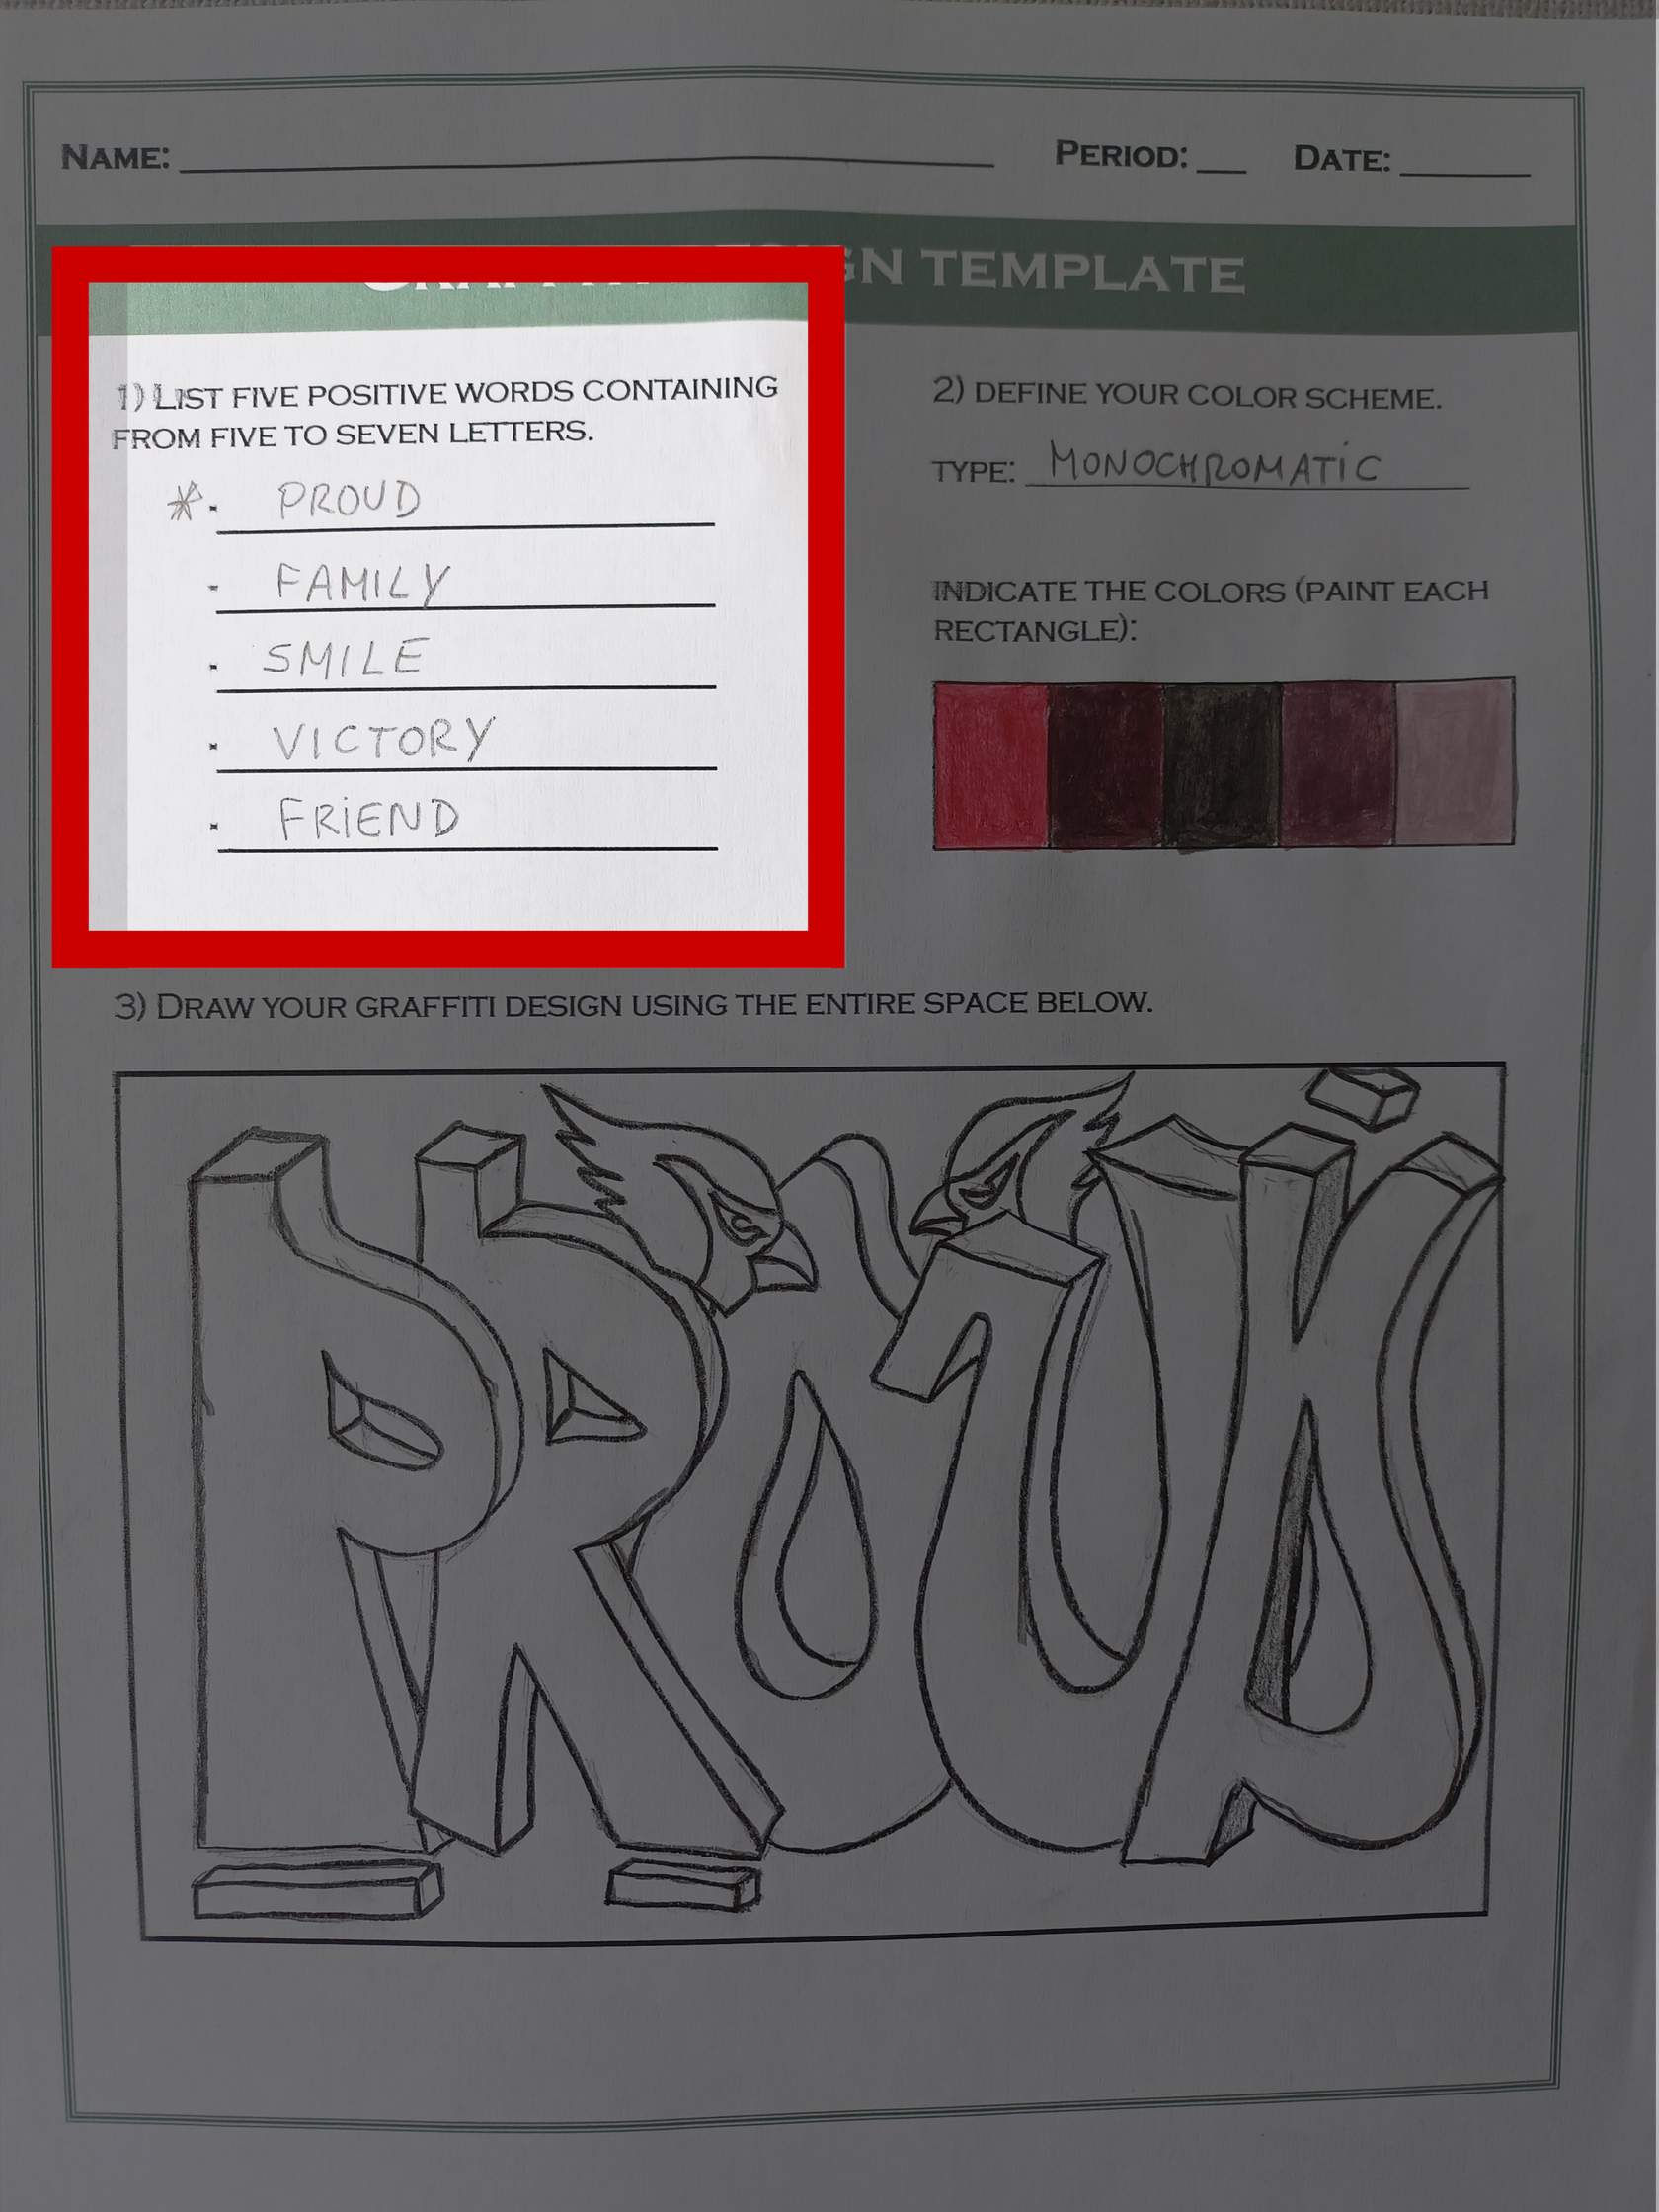 NAME: PERIOD: DATE:
GN TEMPLATE
1) LIST FIVE POSITIVE WORDS CONTAINING
FROM FIVE TO SEVEN LETTERS.
* • PROUD
• FAMILY
• SMILE
• VICTORY
• FRIEND
2) DEFINE YOUR COLOR SCHEME.
TYPE: MONOCHROMATIC
INDICATE THE COLORS (PAINT EACH
RECTANGLE):
3) DRAW YOUR GRAFFITI DESIGN USING THE ENTIRE SPACE BELOW.
PROUD